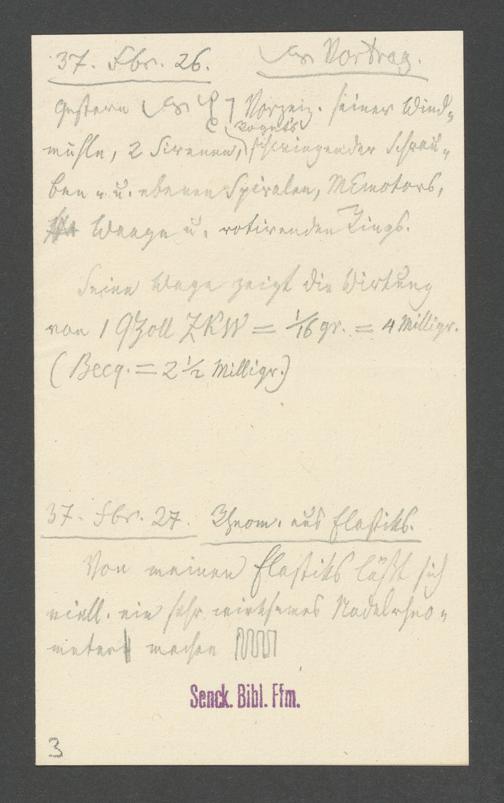 37. Fbr. 26. Vortrag.
Gestern Vorzeig. seiner Wind-
mühle, 2 Sirenen, schwingender Schrau-
ben u. ebenen Spiralen, MEmotors,
Waage u. rotirenden Rings.
Seine Wage zeigt die Wirkung
von 1 QZoll ZKW = 1/16 gr. = 4 Milligr.
(Becq. = 2 1/2 Milligr.)
37. Fbr. 27. Rheom. aus Elastiks.
Von meinen Elastiks läßt sich
viell. ein sehr wirksames Nadelrheo-
meter machen
Senck. Bibl. Ffm.
3